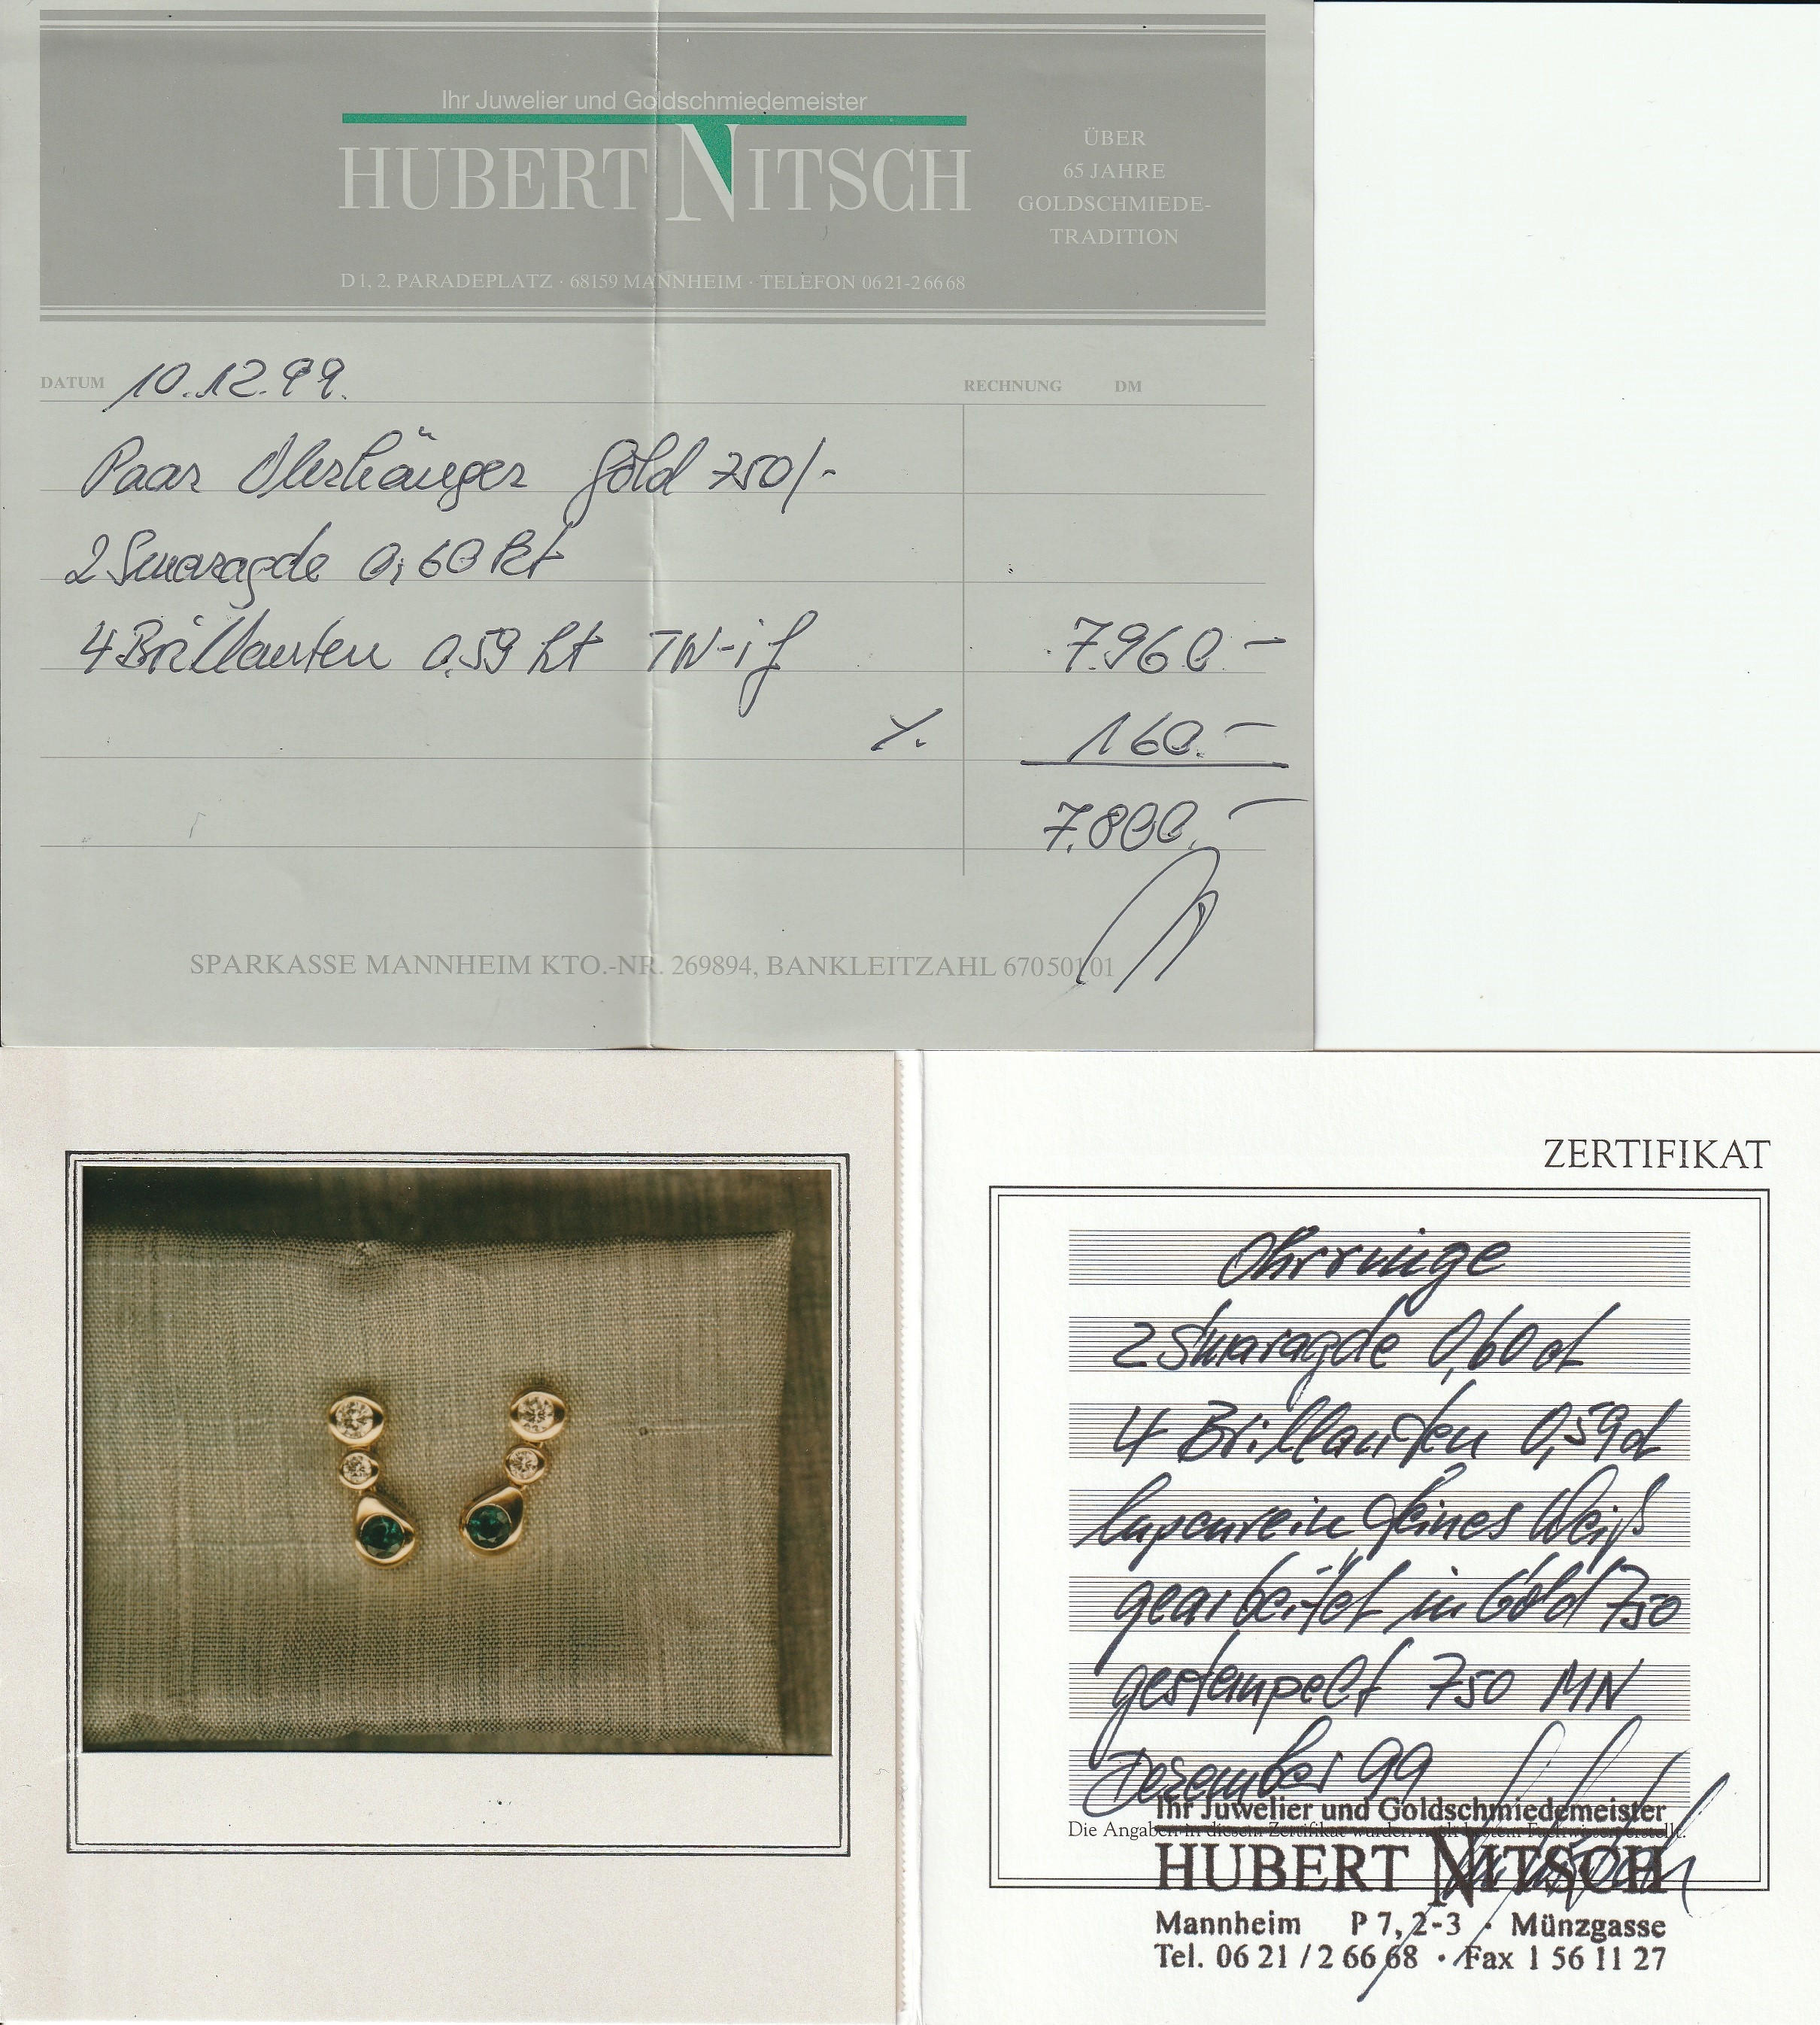 Ihr Juwelier und Goldschmiedemeister
HUBERT NITSCH
ÜBER
65 JAHRE
GOLDSCHMIEDE-
TRADITION
D 1, 2, PARADEPLATZ · 68159 MANNHEIM · TELEFON 06 21-2 66 68
DATUM 10.12.99.
RECHNUNG DM
Paar Ohrhänger Gold 750/-
2 Smaragde 0,60 kt
4 Brillanten 0,59 kt TW-if 7.960.-
⁒ 160.-
7.800.-
SPARKASSE MANNHEIM KTO.-NR. 269894, BANKLEITZAHL 670 501 01
ZERTIFIKAT
Ohrringe
2 Smaragde 0,60 ct
4 Brillanten 0,59 ct
lupenrein feines Weiß
gearbeitet in Gold 750
gestempelt 750 MN
Dezember 99
Ihr Juwelier und Goldschmiedemeister
Die Angaben in diesem Zertifikat wurden nach bestem Fachwissen erstellt.
HUBERT NITSCH
Mannheim P 7, 2-3 · Münzgasse
Tel. 06 21 / 2 66 68 · Fax 1 56 11 27